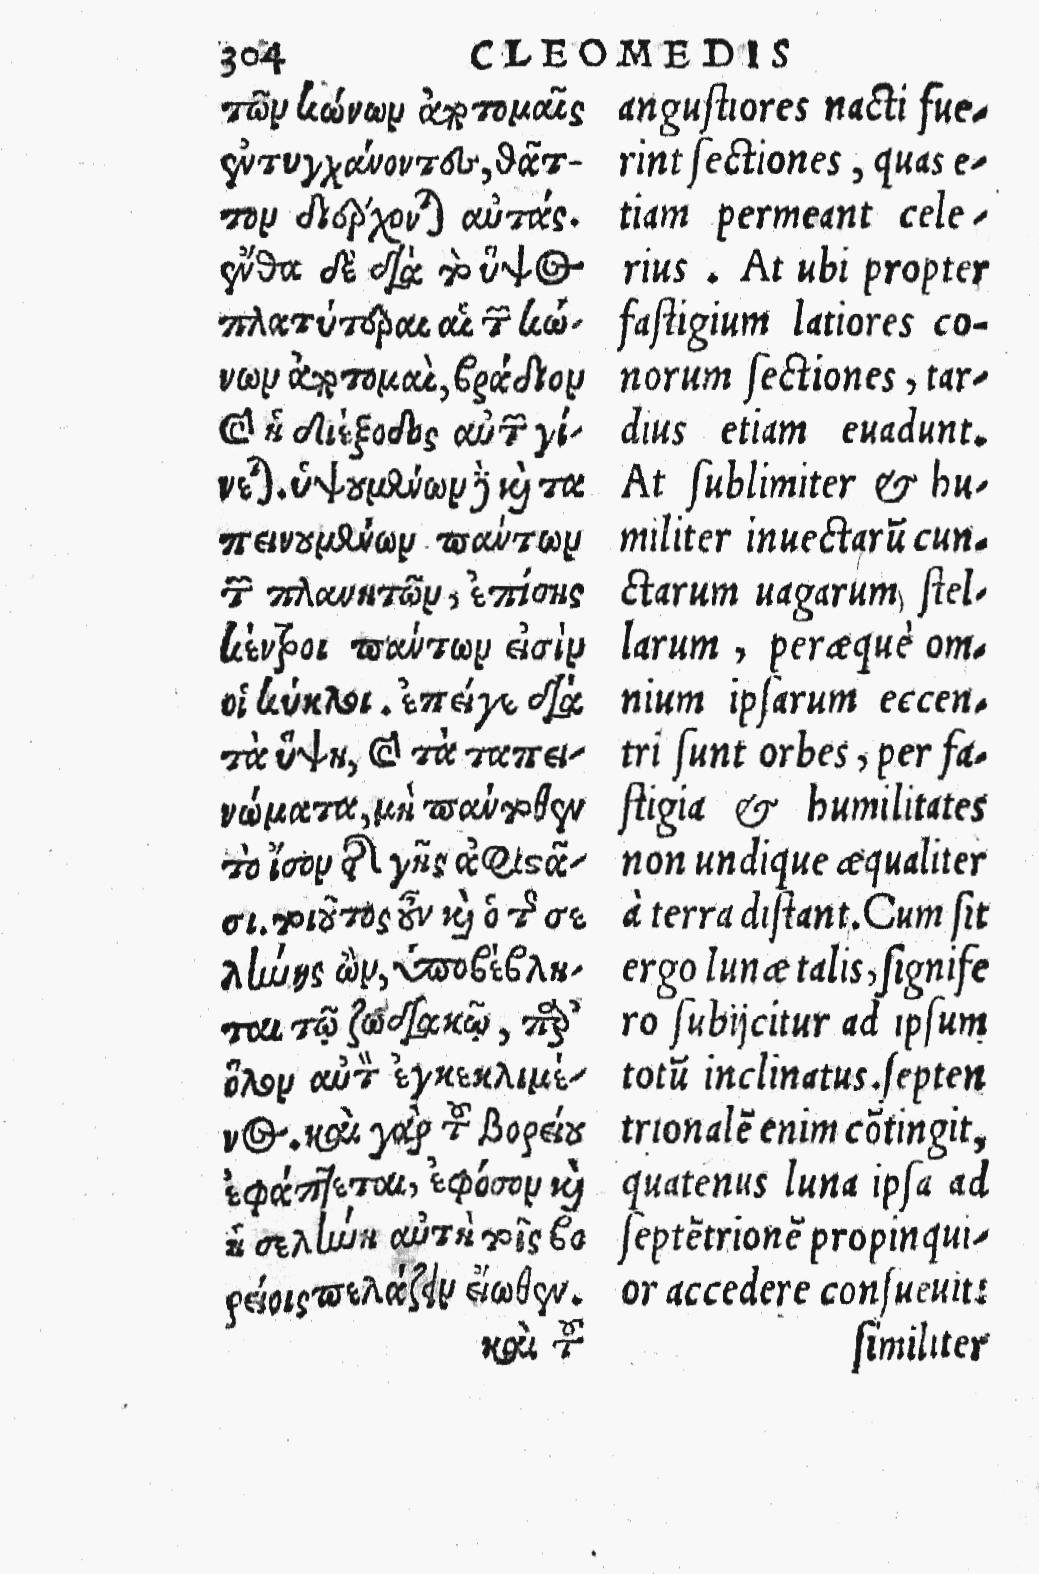 304 CLEOMEDIS
τῶν κώνων ἀποτομαῖς
ἐντυγχάνοντες, θᾶτ-
τον διέρχονται αὐτάς.
ἔνθα δὲ διὰ τὸ ὕψος
πλατύτεραι αἱ τῶν κώ-
νων ἀποτομαὶ, βράδιον
καὶ ἡ διέξοδος αὐτῶν γί-
νεται. ὑψουμένων δὲ καὶ τα
πεινουμένων πάντων
τῶν πλανητῶν, ἐπίσης
κέντροι πάντων εἰσὶν
οἱ κύκλοι. ἐπείγε διὰ
τὰ ὕψη, καὶ τὰ ταπει-
νώματα, μὴ πάντοθεν
τὸ ἴσον τῆς γῆς ἀφιστᾶ-
σι. τοιοῦτος οὖν καὶ ὁ τῆς σε
λήνης ὢν, ὑποβέβλη-
ται τῷ ζωδιακῷ, πρὸς
ὅλον αὐτὸν ἐγκεκλιμέ-
νος. καὶ γὰρ τοῦ βορείου
ἐφάπτεται, ἐφόσον καὶ
ἡ σελήνη αὐτὴ τοῖς βο
ρείοις πελάζειν εἴωθεν.
καὶ τοῦ
angustiores nacti fue-
rint sectiones, quas e-
tiam permeant cele-
rius. At ubi propter
fastigium latiores co-
norum sectiones, tar-
dius etiam euadunt.
At sublimiter & hu-
militer inuectarũ cun-
ctarum uagarum stel-
larum, peræquè om-
nium ipsarum eccen-
tri sunt orbes, per fa-
stigia & humilitates
non undique æqualiter
à terra distant. Cum sit
ergo lunæ talis, signife
ro subijcitur ad ipsum
totũ inclinatus. septen
trionalẽ enim cõtingit,
quatenus luna ipsa ad
septẽtrionẽ propinqui-
or accedere consueuit:
similiter